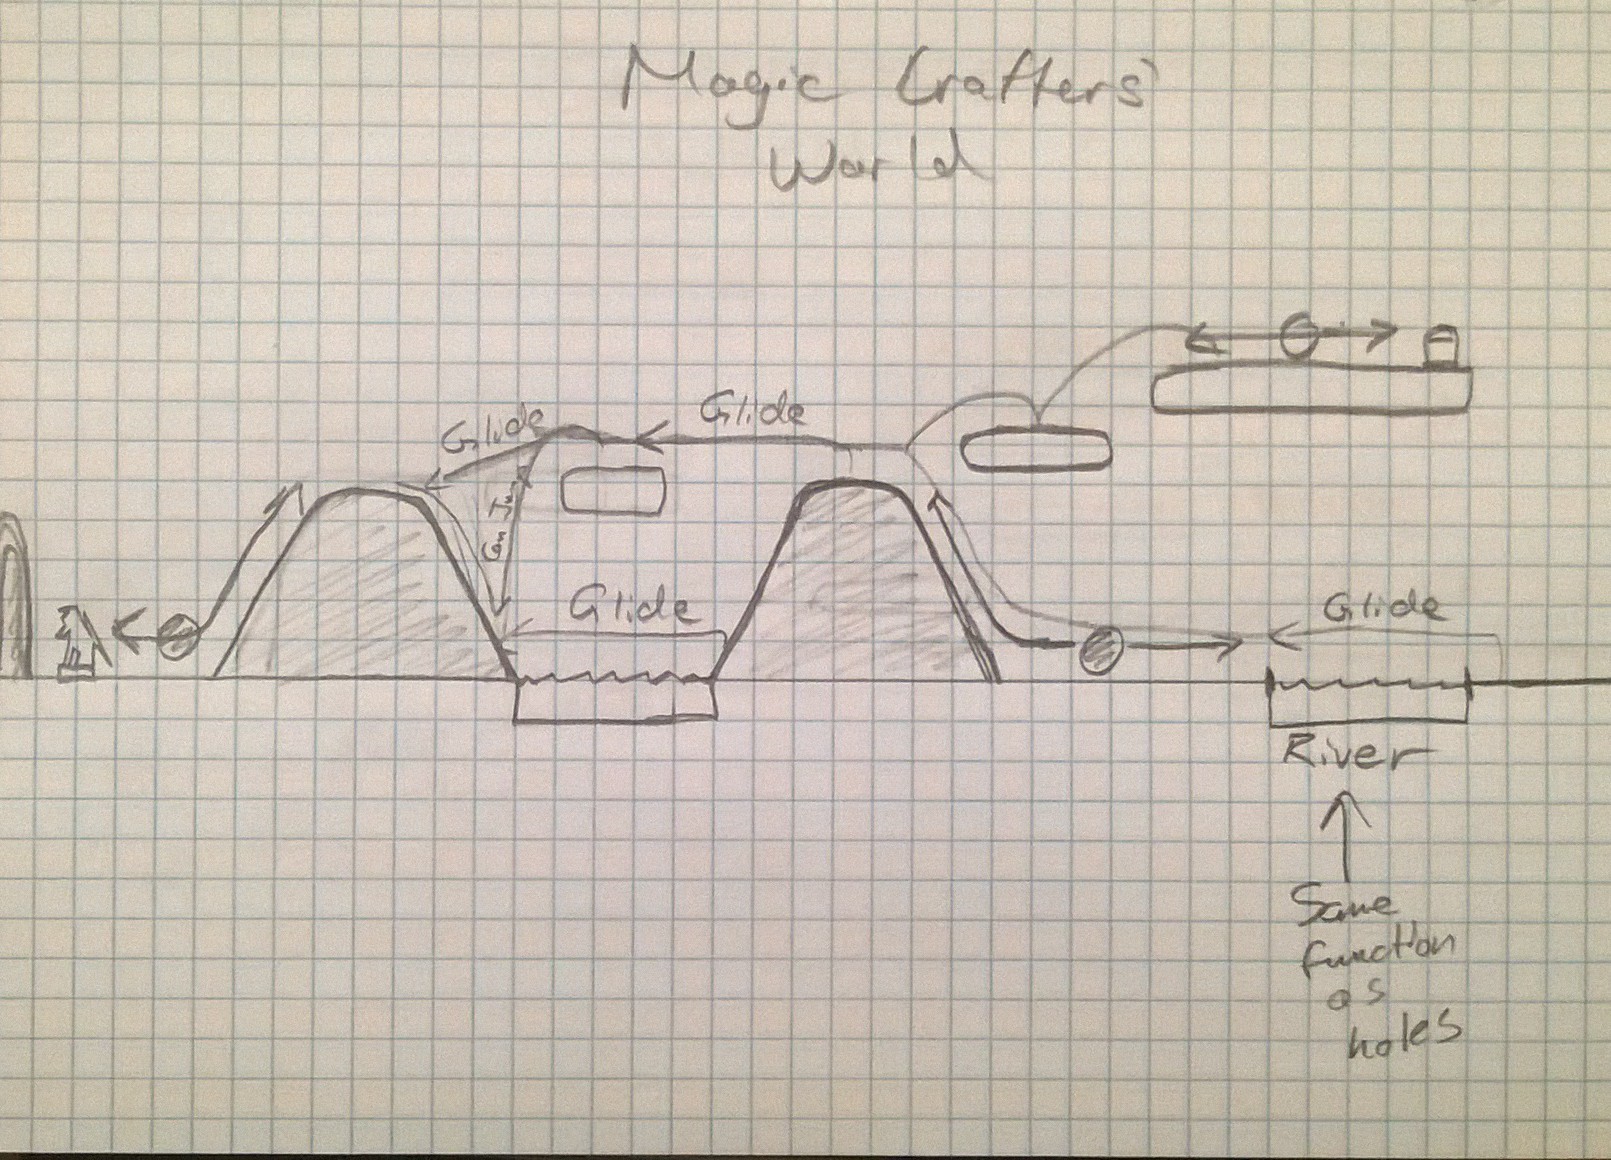 Magic Crafters'
World
Glide
Glide
Can
Glide
Glide
River
Same
function
as
holes